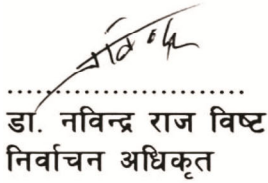 ........................
डा. नविन्द्र राज विष्ट
निर्वाचन अधिकृत